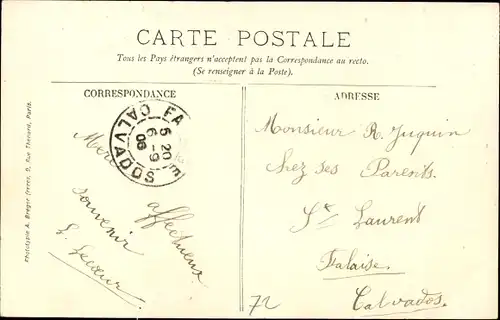 CARTE POSTALE
Tous les Pays étrangers n'acceptent pas la Correspondance au recto.
(Se renseigner à la Poste).
CORRESPONDANCE
ADRESSE
FA
CALVADOS
5 20
6-9
06
affectueux
souvenir
Monsieur R. Juquin
chez ses Parents
Ste Laurent
Falaise.
Calvados.
72
Phototypie A. Breger frères, 9, Rue Thénard, Paris.